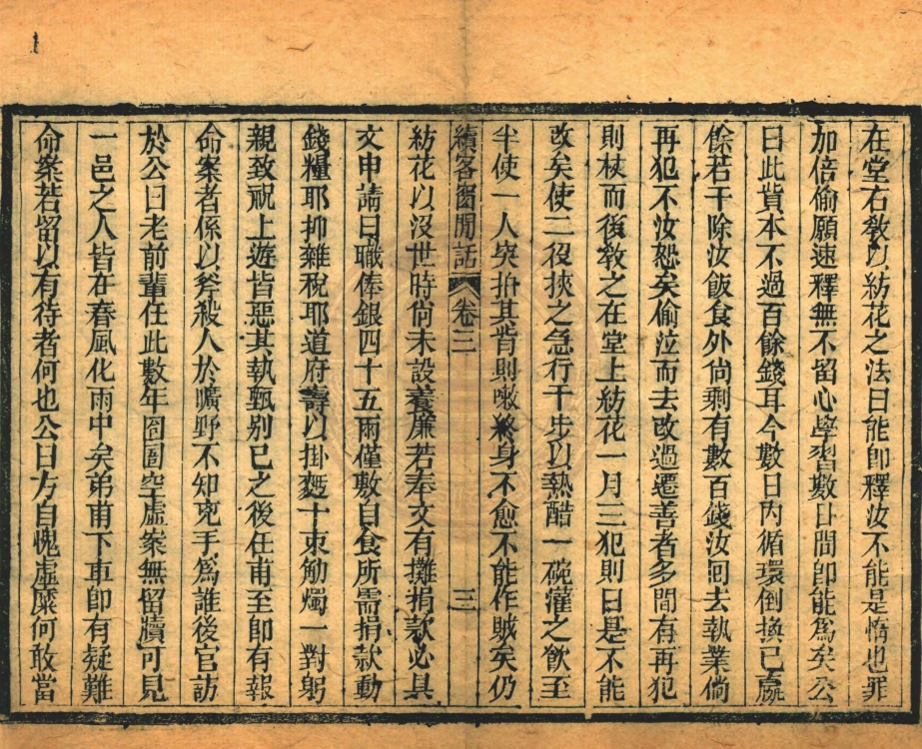 在堂右敎以紡花之法曰能卽釋汝不能是惰也罪
加倍偷願速釋無不畱心學習數日間卽能爲矣公
曰此貲本不過百餘錢耳今數日內循環倒換已贏
餘若干除汝飯食外尙剩有數百錢汝囘去執業倘
再犯不汝恕矣偷泣而去改過遷善者多間有再犯
則杖而後敎之在堂上紡花一月三犯則曰是不能
改矣使二役挾之急行千步以熱醋一碗灌之飮至
半使一人突拍其背則嗽終身不愈不能作賊矣仍
續客窗閒話 卷三 三
紡花以沒世時尙未設養廉若奉文有攤捐款必具
文申請曰職俸銀四十五兩僅敷自食所需捐款動
錢糧耶抑雜稅耶道府壽以掛麪十束觔燭一對躬
親致祝上遊皆惡其執甄别已之後任甫至卽有報
命案者係以斧殺人於曠野不知兇手爲誰後官訪
於公曰老前輩任此數年囹圄空虛案無留牘可見
一邑之人皆在春風化雨中矣弟甫下車卽有疑難
命案若留以有待者何也公曰方自愧虛糜何敢當